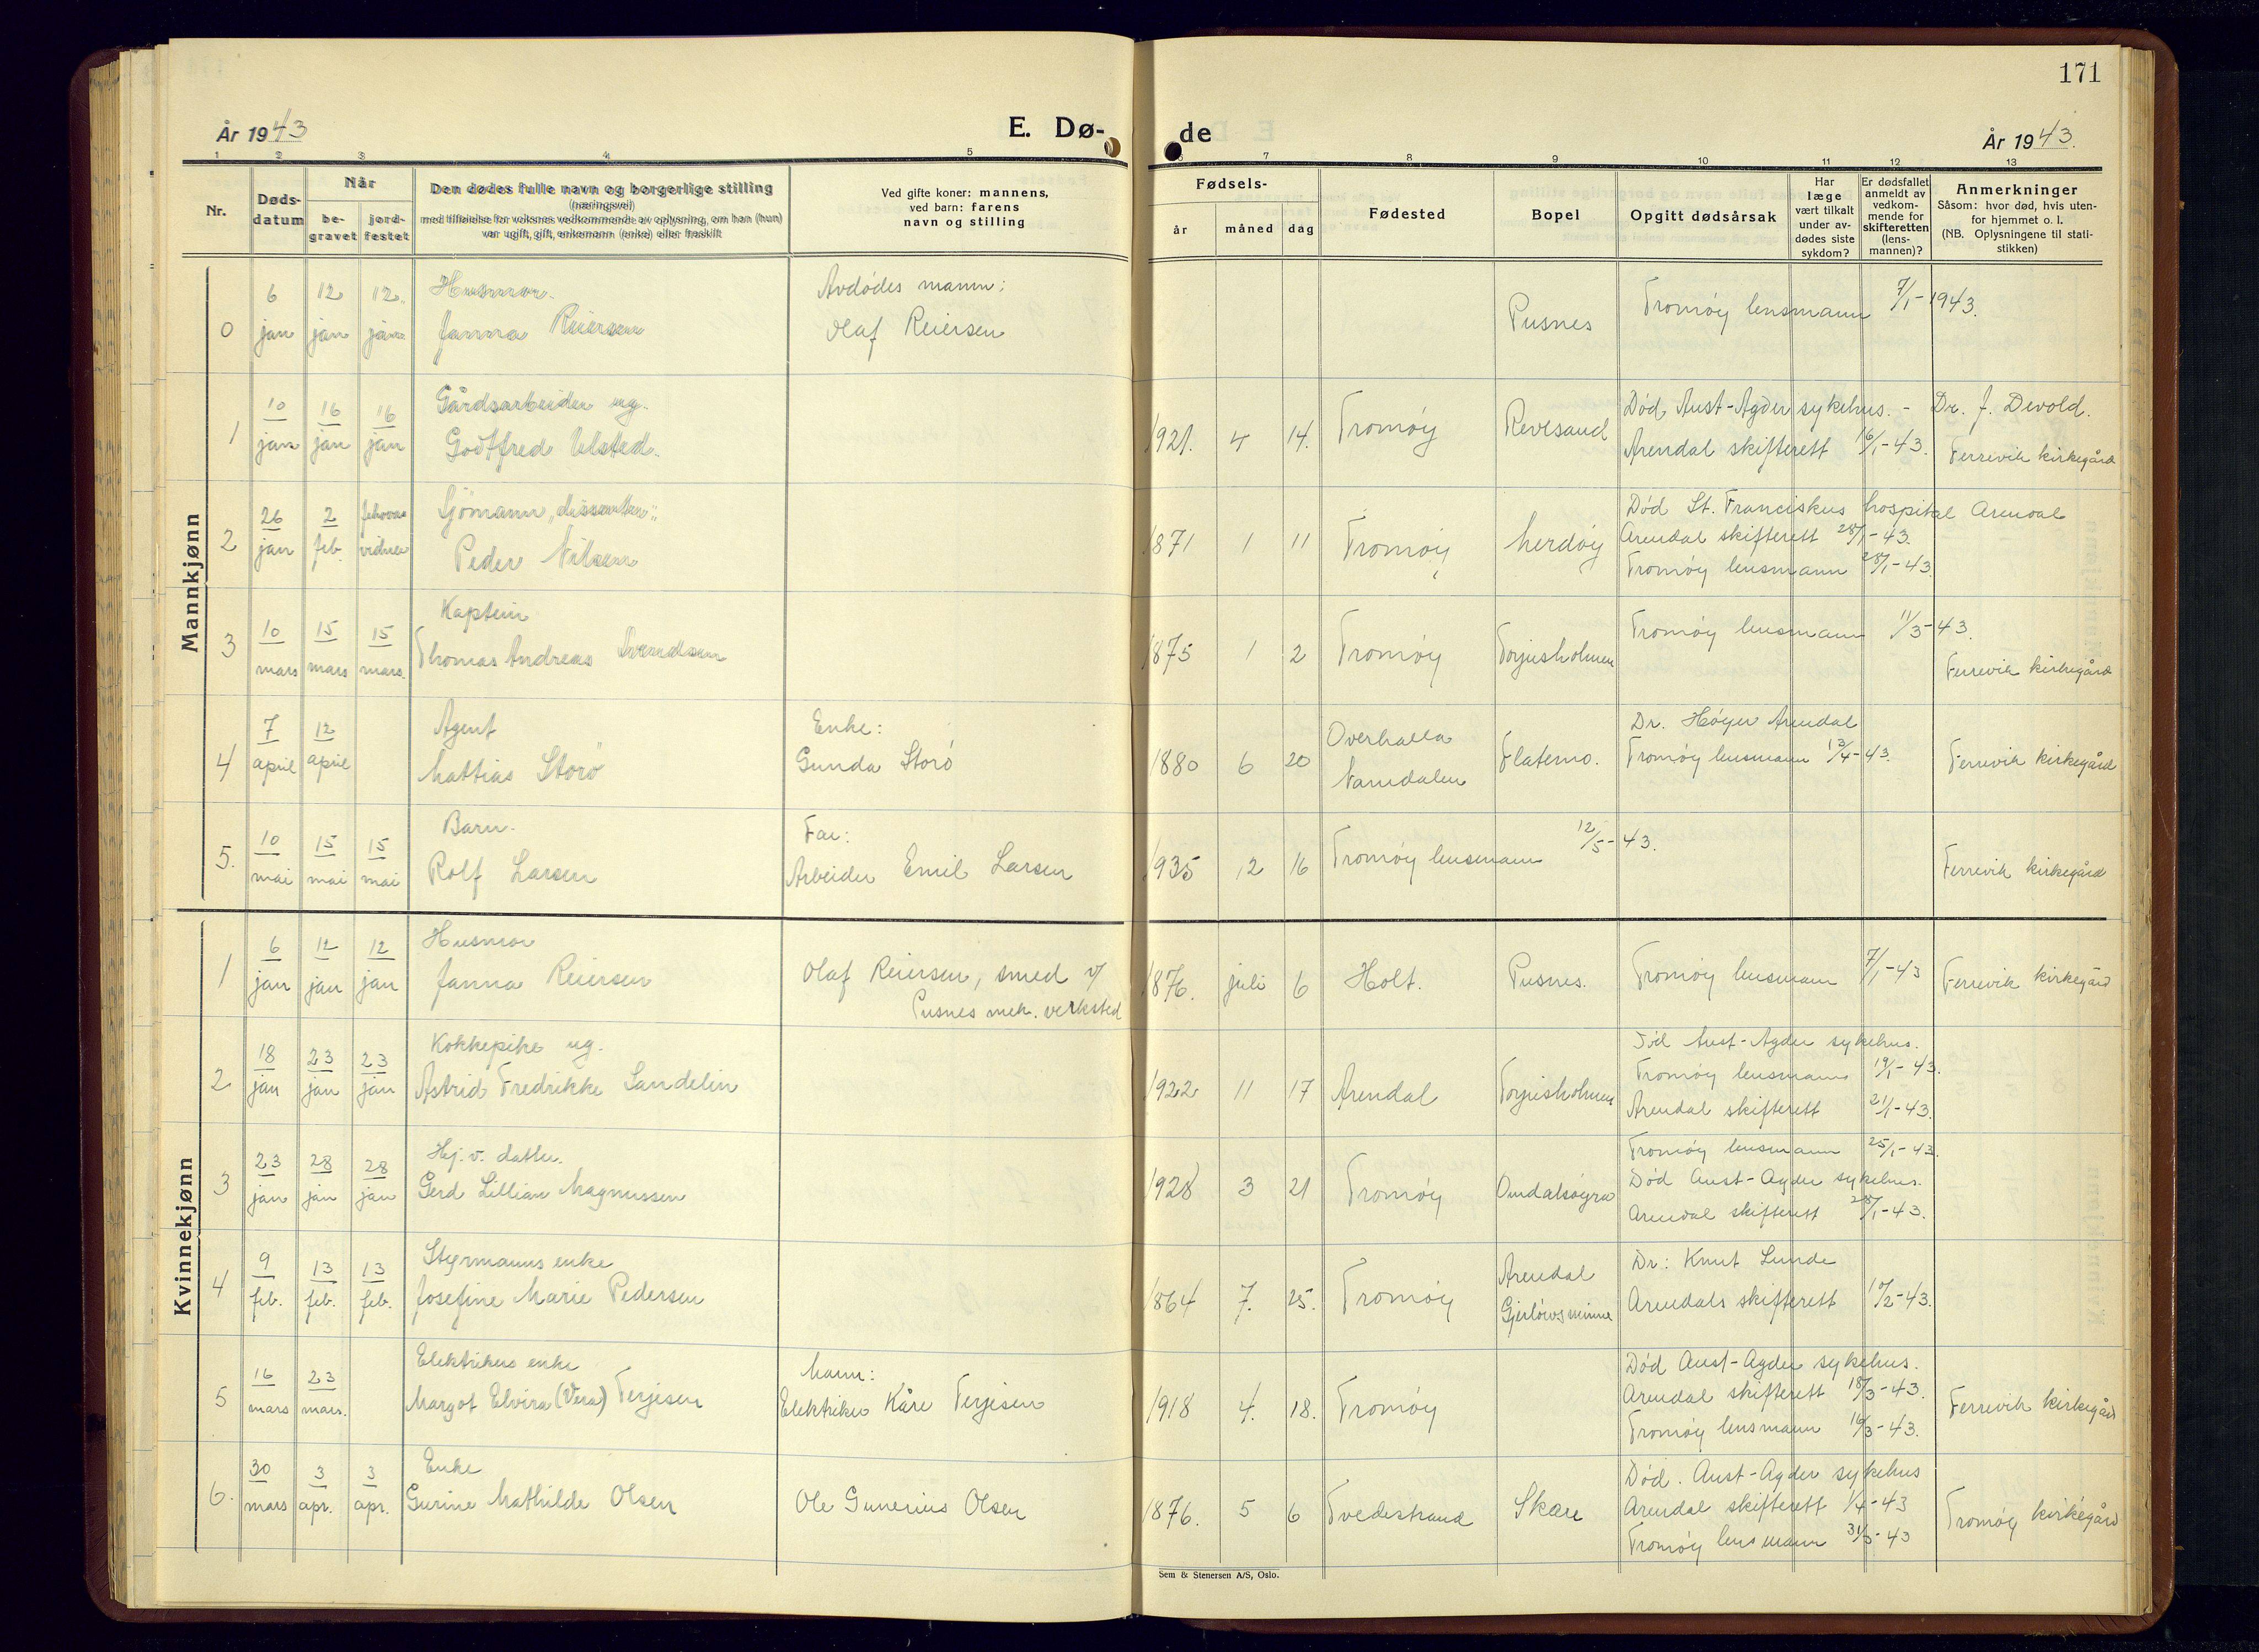 171
År 1943
E. Dø-
de
År 1943.
1 2 3 4 5 6 7 8 9 10 11 12 13
Nr.
Døds-
datum
Når
be-
gravet
jord-
festet
Den dødes fulle navn og borgerlige stilling
(næringsvei)
med tilføielse for voksnes vedkommende av oplysning, om han (hun)
var ugift, gift, enkemann (enke) eller fraskilt
Ved gifte koner: mannens,
ved barn: farens
navn og stilling
Fødsels-
år
måned
dag
Fødested
Bopel
Opgitt dødsårsak
Har
læge
vært tilkalt
under av-
dødes siste
sykdom?
Er dødsfallet
anmeldt av
vedkom-
mende for
skifteretten
(lens-
mannen)?
Anmerkninger
Såsom: hvor død, hvis uten-
for hjemmet o. l.
(NB. Oplysningene til stati-
stikken)
Mannkjønn
0
6 jan
12 jan
12. jan
Husmor.
Janna Reiersen
Avdødes mann:
Olaf Reiersen
Pusnes
Tromøy lensmann 7/1-1943.
1
10 jan
16 jan
16 jan
Gårdsarbeider ug.
Godtfred Ulsted.
1921. 4 14.
Tromøy
Revesand
Død Aust-Agder sykehus. - Dr. J. Devold.
Arendal skifterett 16/1-43.
Færevik kirkegård
2
26 jan
2 feb.
Sjømann "dissenter"
Peder Nilsen
1871 1 11
Tromøy
Merdøy
Død St. Franciskus hospital Arendal
Arendal skifterett 28/1-43.
Tromøy lensmann 28/1-43.
3
10 mars
15 mars
15 mars.
Kaptein
Thomas Andreas Svendsen
1875 1 2
Tromøy
Torjusholmen
Tromøy lensmann 11/3-43.
Færevik kirkegård
4
7 april
12 april
Agent
Mattias Storø
Enke:
Gunda Storø
1880 6 20
Overhalla
Namdalen
Flatemo.
Dr. Høyer Arendal
Tromøy lensmann 13/4-43.
Færevik kirkegård
5.
10 mai
15 mai
15 mai
Barn.
Rolf Larsen
Far:
Arbeider Emil Larsen
1935 12 16
Tromøy lensmann 12/5-43.
Færevik kirkegård
Kvinnekjønn
1
6 jan
12 jan
12 jan
Husmor
Janna Reiersen
Olaf Reiersen, smed v/
Pusnes mek. verksted
1876. juli 6
Holt.
Pusnes.
Tromøy lensmann 7/1-43
Færevik kirkegård
2
18 jan
23 jan
23 jan
Kokkepike ug.
Astrid Fredrikke Sandelin
1922 11 17
Arendal
Torjusholmen
Aust-Agder sykehus.
Tromøy lensmann 19/1-43.
Arendal skifterett 21/1-43.
3
23 jan
28 jan
28 jan
Hj. v. datter.
Gerd Lillian Magnussen
1928 3 21
Tromøy
Omdalsøyra
Tromøy lensmann 25/1-43.
Død Aust-Agder sykehus.
Arendal skifterett 28/1-43.
4
9 feb.
13 feb.
13 feb.
Styrmanns enke
Josefine Marie Pedersen
1864 7. 25.
Tromøy
Arendal
Gjerløwsminne
Dr: Knut Lunde
Arendals skifterett 10/2-43.
5
16 mars
23 mars.
Elektrikers enke
Margot Elvira (Vera) Terjesen
Mann:
Elektriker Kåre Terjesen
1918 4. 18.
Tromøy
Død Aust-Agder sykehus.
Arendal skifterett 18/3-43.
Tromøy lensmann 16/3-43.
Færevik kirkegård
6.
30 mars
3 apr.
3 apr.
Enke
Gurine Mathilde Olsen
Ole Gunerius Olsen
1876. 5 6
Tvedestrand
Skare
Død. Aust-Agder sykehus
Arendal skifterett 1/4-43
Tromøy lensmann 31/3-43
Tromøy kirkegård
Sem & Stenersen A/S, Oslo.